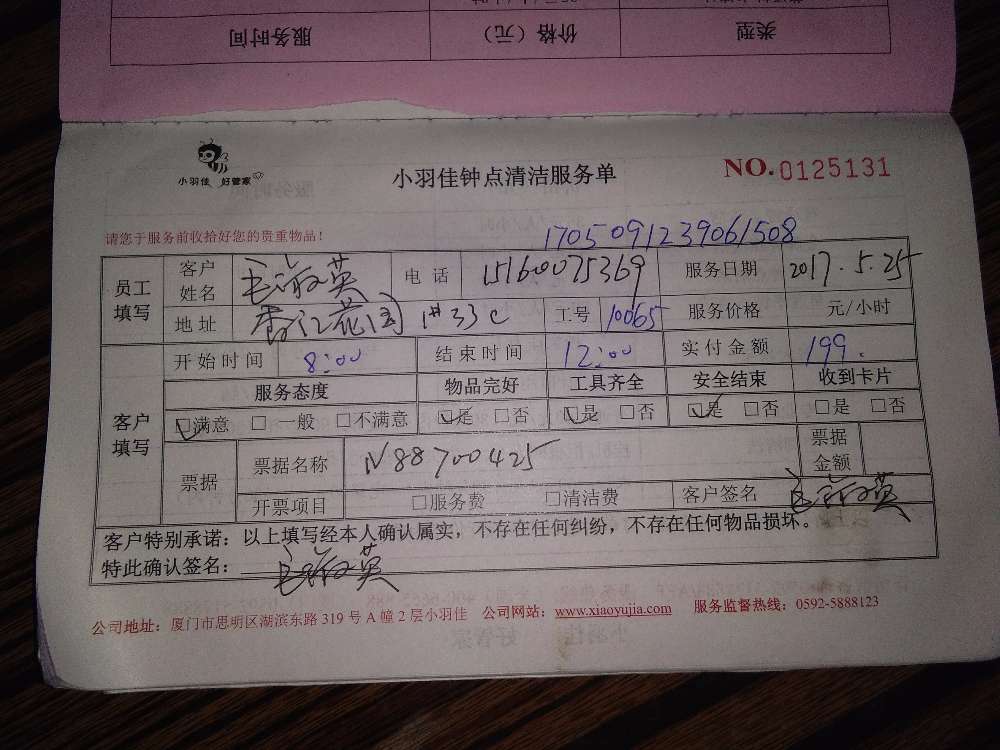 服务时间 价格（元） 类型
小羽佳 好管家
小羽佳钟点清洁服务单
NO.0125131
请您于服务前收拾好您的贵重物品！
1705091239061508
员工填写 客户姓名 毛淑英 电话 15160075369 服务日期 2017.5.25
地址 香江花园 1# 33C 工号 10065 服务价格 元/小时
客户填写 开始时间 8:00 结束时间 12:00 实付金额 199.
服务态度 物品完好 工具齐全 安全结束 收到卡片
☑满意 □一般 □不满意 ☑是 □否 ☑是 □否 ☑是 □否 □是 □否
票据 票据名称 N88700425 票据金额
开票项目 □服务费 □清洁费 客户签名 毛淑英
客户特别承诺：以上填写经本人确认属实，不存在任何纠纷，不存在任何物品损坏。
特此确认签名：毛淑英
公司地址：厦门市思明区湖滨东路319号A幢2层小羽佳 公司网站：www.xiaoyujia.com 服务监督热线：0592-5888123